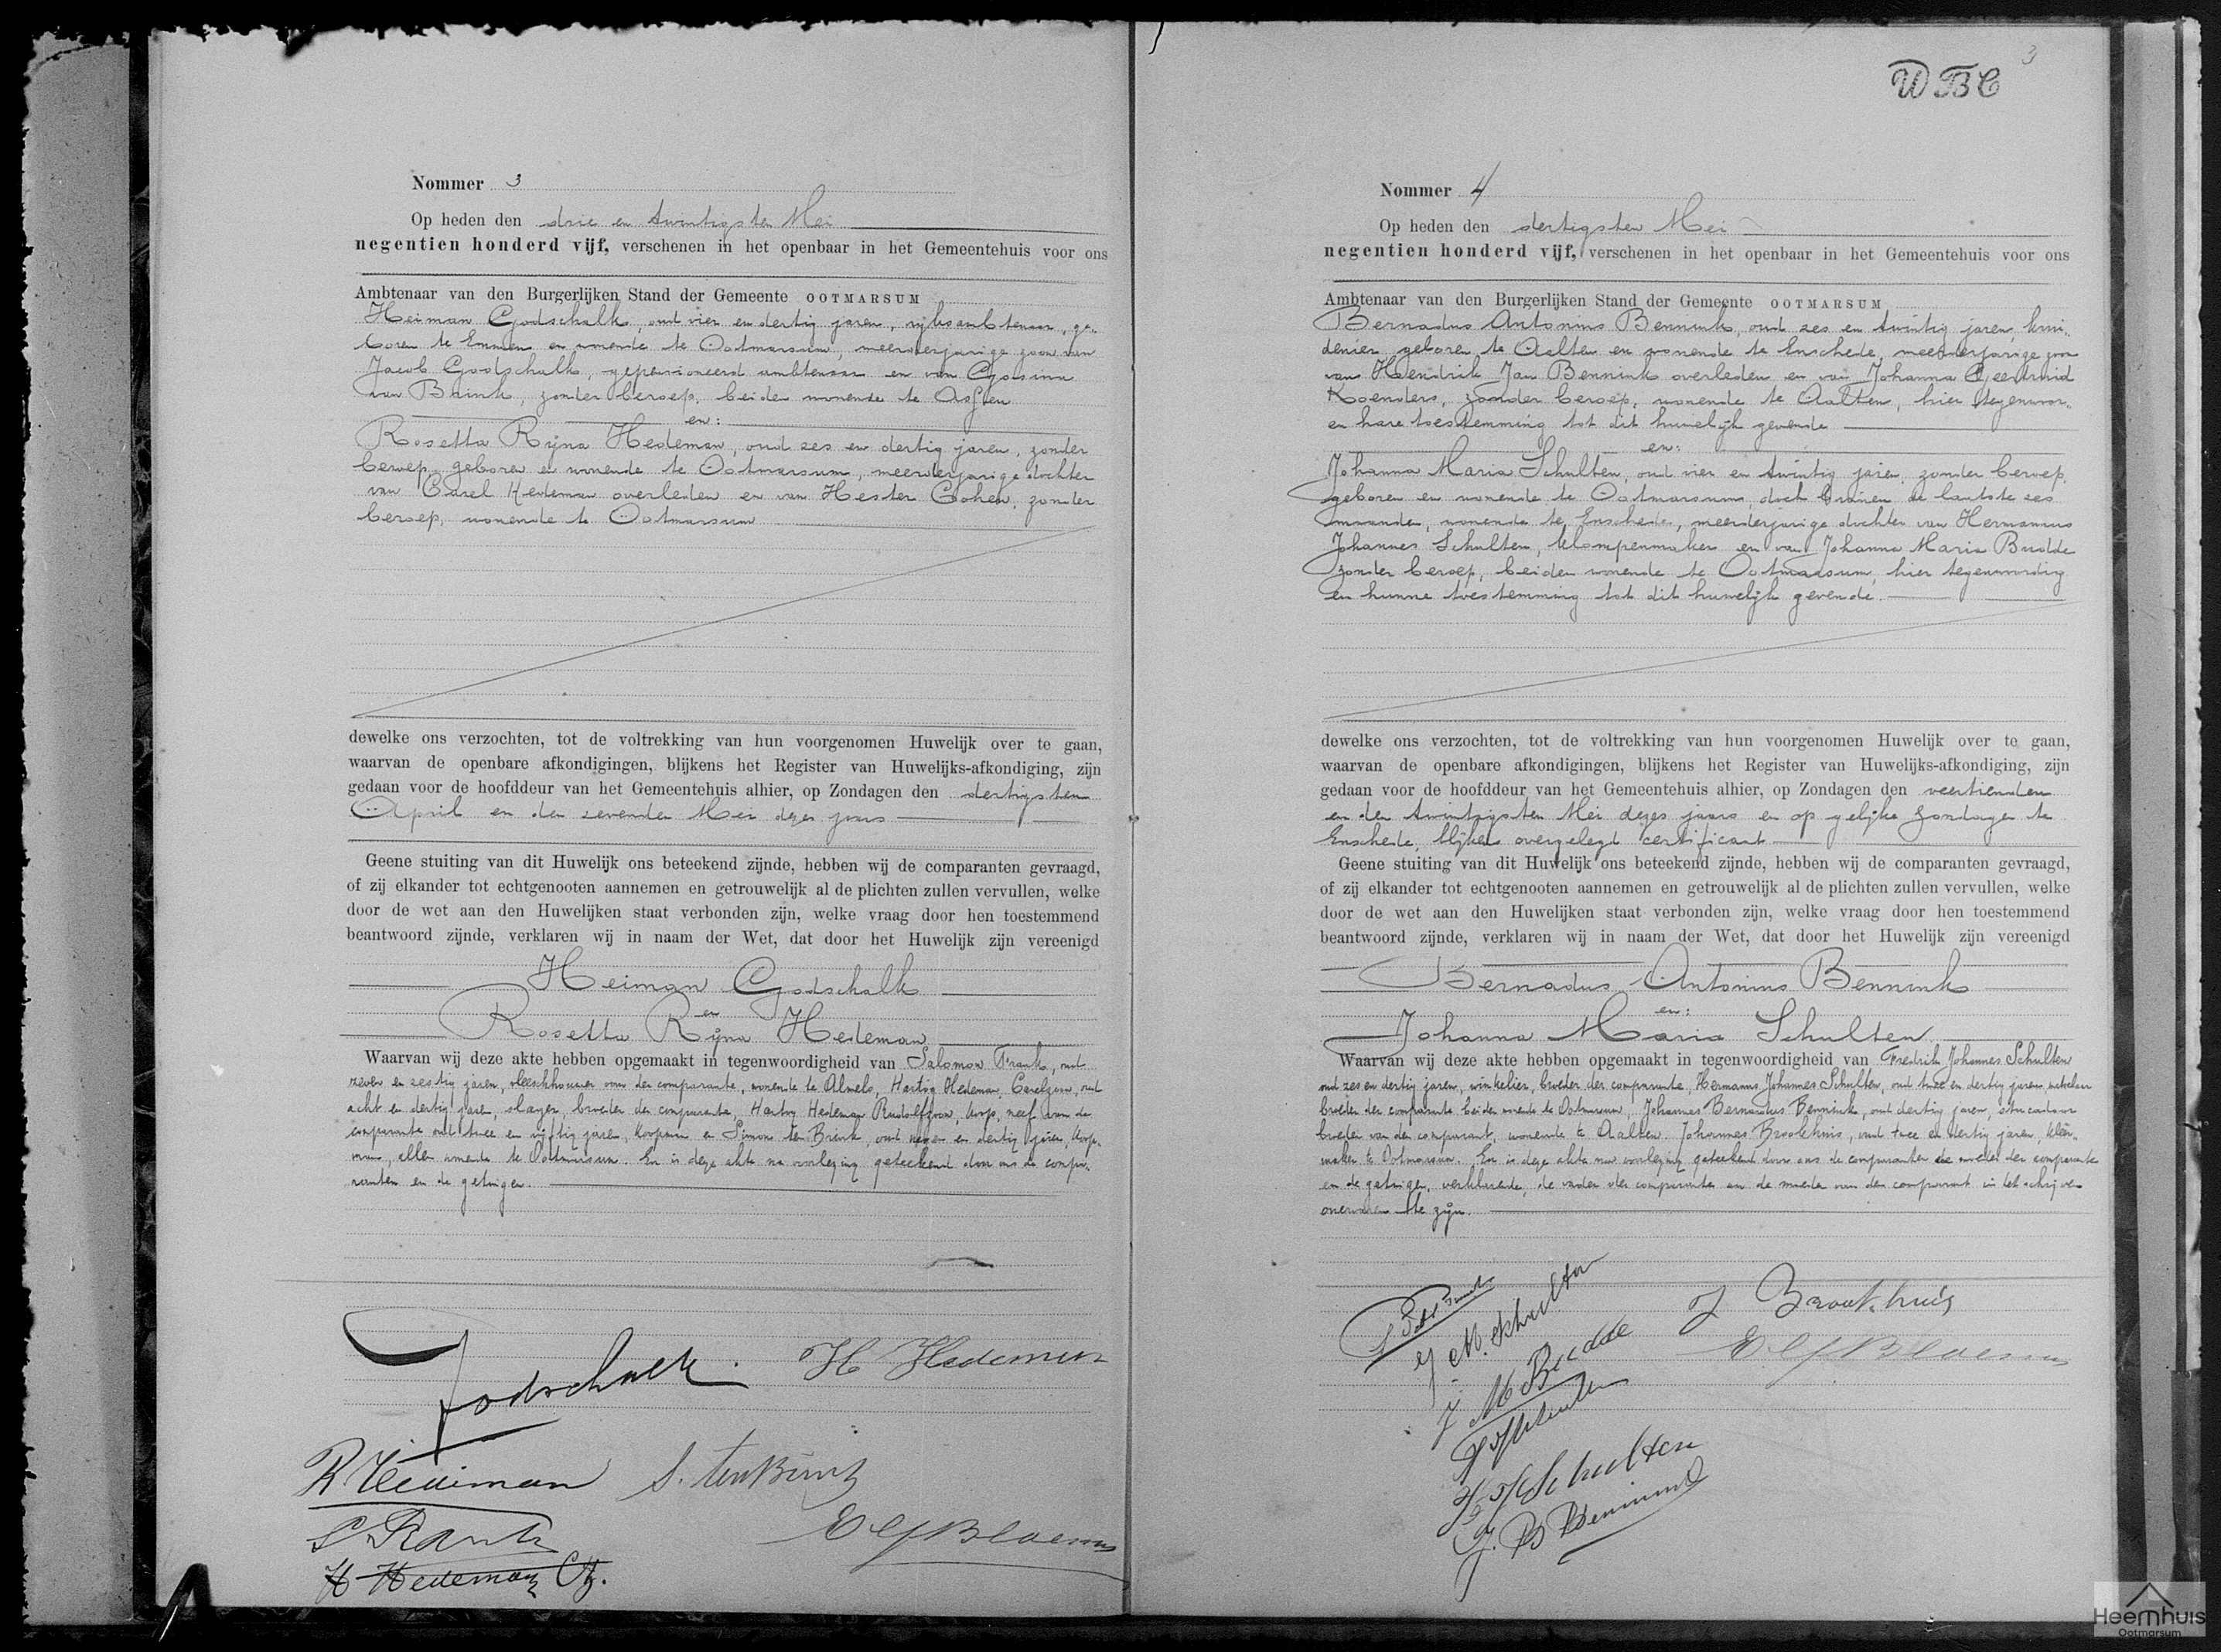 Nommer 3
Op heden den drie en twintigsten Mei
negentien honderd vijf, verschenen in het openbaar in het Gemeentehuis voor ons
Ambtenaar van den Burgerlijken Stand der Gemeente OOTMARSUM
Heiman Godschalk, oud vier en dertig jaren, rijksambtenaar, ge-
boren te Emmen en wonende te Ootmarsum, meerderjarige zoon van
Jacob Godschalk, gepensioneerd ambtenaar en van Gosina
van Brink, zonder beroep, beiden wonende te Assen
en:
Rosetta Rijna Hedeman, oud zes en dertig jaren, zonder
beroep, geboren en wonende te Ootmarsum, meerderjarige dochter
van Carel Hedeman overleden en van Hester Cohen, zonder
beroep, wonende te Ootmarsum
dewelke ons verzochten, tot de voltrekking van hun voorgenomen Huwelijk over te gaan,
waarvan de openbare afkondigingen, blijkens het Register van Huwelijks-afkondiging, zijn
gedaan voor de hoofddeur van het Gemeentehuis alhier, op Zondagen den dertigsten
April en den zevenden Mei dezes jaars
Geene stuiting van dit Huwelijk ons beteekend zijnde, hebben wij de comparanten gevraagd,
of zij elkander tot echtgenooten aannemen en getrouwelijk al de plichten zullen vervullen, welke
door de wet aan den Huwelijken staat verbonden zijn, welke vraag door hen toestemmend
beantwoord zijnde, verklaren wij in naam der Wet, dat door het Huwelijk zijn vereenigd
Heiman Godschalk
en
Rosetta Rijna Hedeman
Waarvan wij deze akte hebben opgemaakt in tegenwoordigheid van Salomon Frank, oud
zeven en zestig jaren, vleeschhouwer, oom der comparante, wonende te Almelo, Hartog Hedeman, Carelzoon, oud
acht en dertig jaren, slager, broeder der comparante, Hartog Hedeman Rudolfzoon, neef van de
comparante oud twee en vijftig jaren, koopman en Simon ten Brink, oud negen en dertig jaren, koop-
man, allen wonende te Ootmarsum. En is deze akte na voorlezing geteekend door ons de compa-
ranten en de getuigen.
Godschalk. H Hedeman
R Hedeman S. ten Brink
S Frank
H Hedeman Cz.
WBC
3
Nommer 4
Op heden den dertigsten Mei
negentien honderd vijf, verschenen in het openbaar in het Gemeentehuis voor ons
Ambtenaar van den Burgerlijken Stand der Gemeente OOTMARSUM
Bernadus Antonius Bennink, oud zes en twintig jaren, krui-
denier, geboren te Aalten en wonende te Enschede, meerderjarige zoon
van Hendrik Jan Bennink overleden en van Johanna Geertruid
Koenders, zonder beroep, wonende te Aalten, hier tegenwoor-
en hare toestemming tot dit huwelijk gevende
en:
Johanna Maria Schulten, oud vier en twintig jaren, zonder beroep,
geboren en wonende te Ootmarsum, doch binnen de laatste zes
maanden, wonende te Enschede, meerderjarige dochter van Hermannus
Johannes Schulten, klompenmaker en van Johanna Maria Budde
zonder beroep, beiden wonende te Ootmarsum, hier tegenwoordig
en hunne toestemming tot dit huwelijk gevende.
dewelke ons verzochten, tot de voltrekking van hun voorgenomen Huwelijk over te gaan,
waarvan de openbare afkondigingen, blijkens het Register van Huwelijks-afkondiging, zijn
gedaan voor de hoofddeur van het Gemeentehuis alhier, op Zondagen den veertienden
en den twintigsten Mei dezes jaars en op gelijke Zondagen te
Enschede, blijkens overgelegd certificaat
Geene stuiting van dit Huwelijk ons beteekend zijnde, hebben wij de comparanten gevraagd,
of zij elkander tot echtgenooten aannemen en getrouwelijk al de plichten zullen vervullen, welke
door de wet aan den Huwelijken staat verbonden zijn, welke vraag door hen toestemmend
beantwoord zijnde, verklaren wij in naam der Wet, dat door het Huwelijk zijn vereenigd
Bernadus Antonius Bennink
en:
Johanna Maria Schulten
Waarvan wij deze akte hebben opgemaakt in tegenwoordigheid van Fredrik Johannes Schulten
oud zes en dertig jaren, winkelier, broeder der comparante, Hermanus Johannes Schulten, oud twee en dertig jaren
broeder der comparante beiden wonende te Ootmarsum, Johannes Bernardus Bennink, oud dertig jaren, stucadoor
broeder van den comparant, wonende te Aalten. Johannes Brookhuis, oud twee en dertig jaren, kleer-
maker te Ootmarsum. En is deze akte na voorlezing geteekend door ons de comparanten de moeder der comparante
en de getuigen, verklarende, de vader der comparante en de moeder van den comparant in het schrijven
onervaren te zijn.
J M. Schulten J Brookhuis
J M Budde
H J Schulten
J. B Bennink
Heemhuis
Ootmarsum